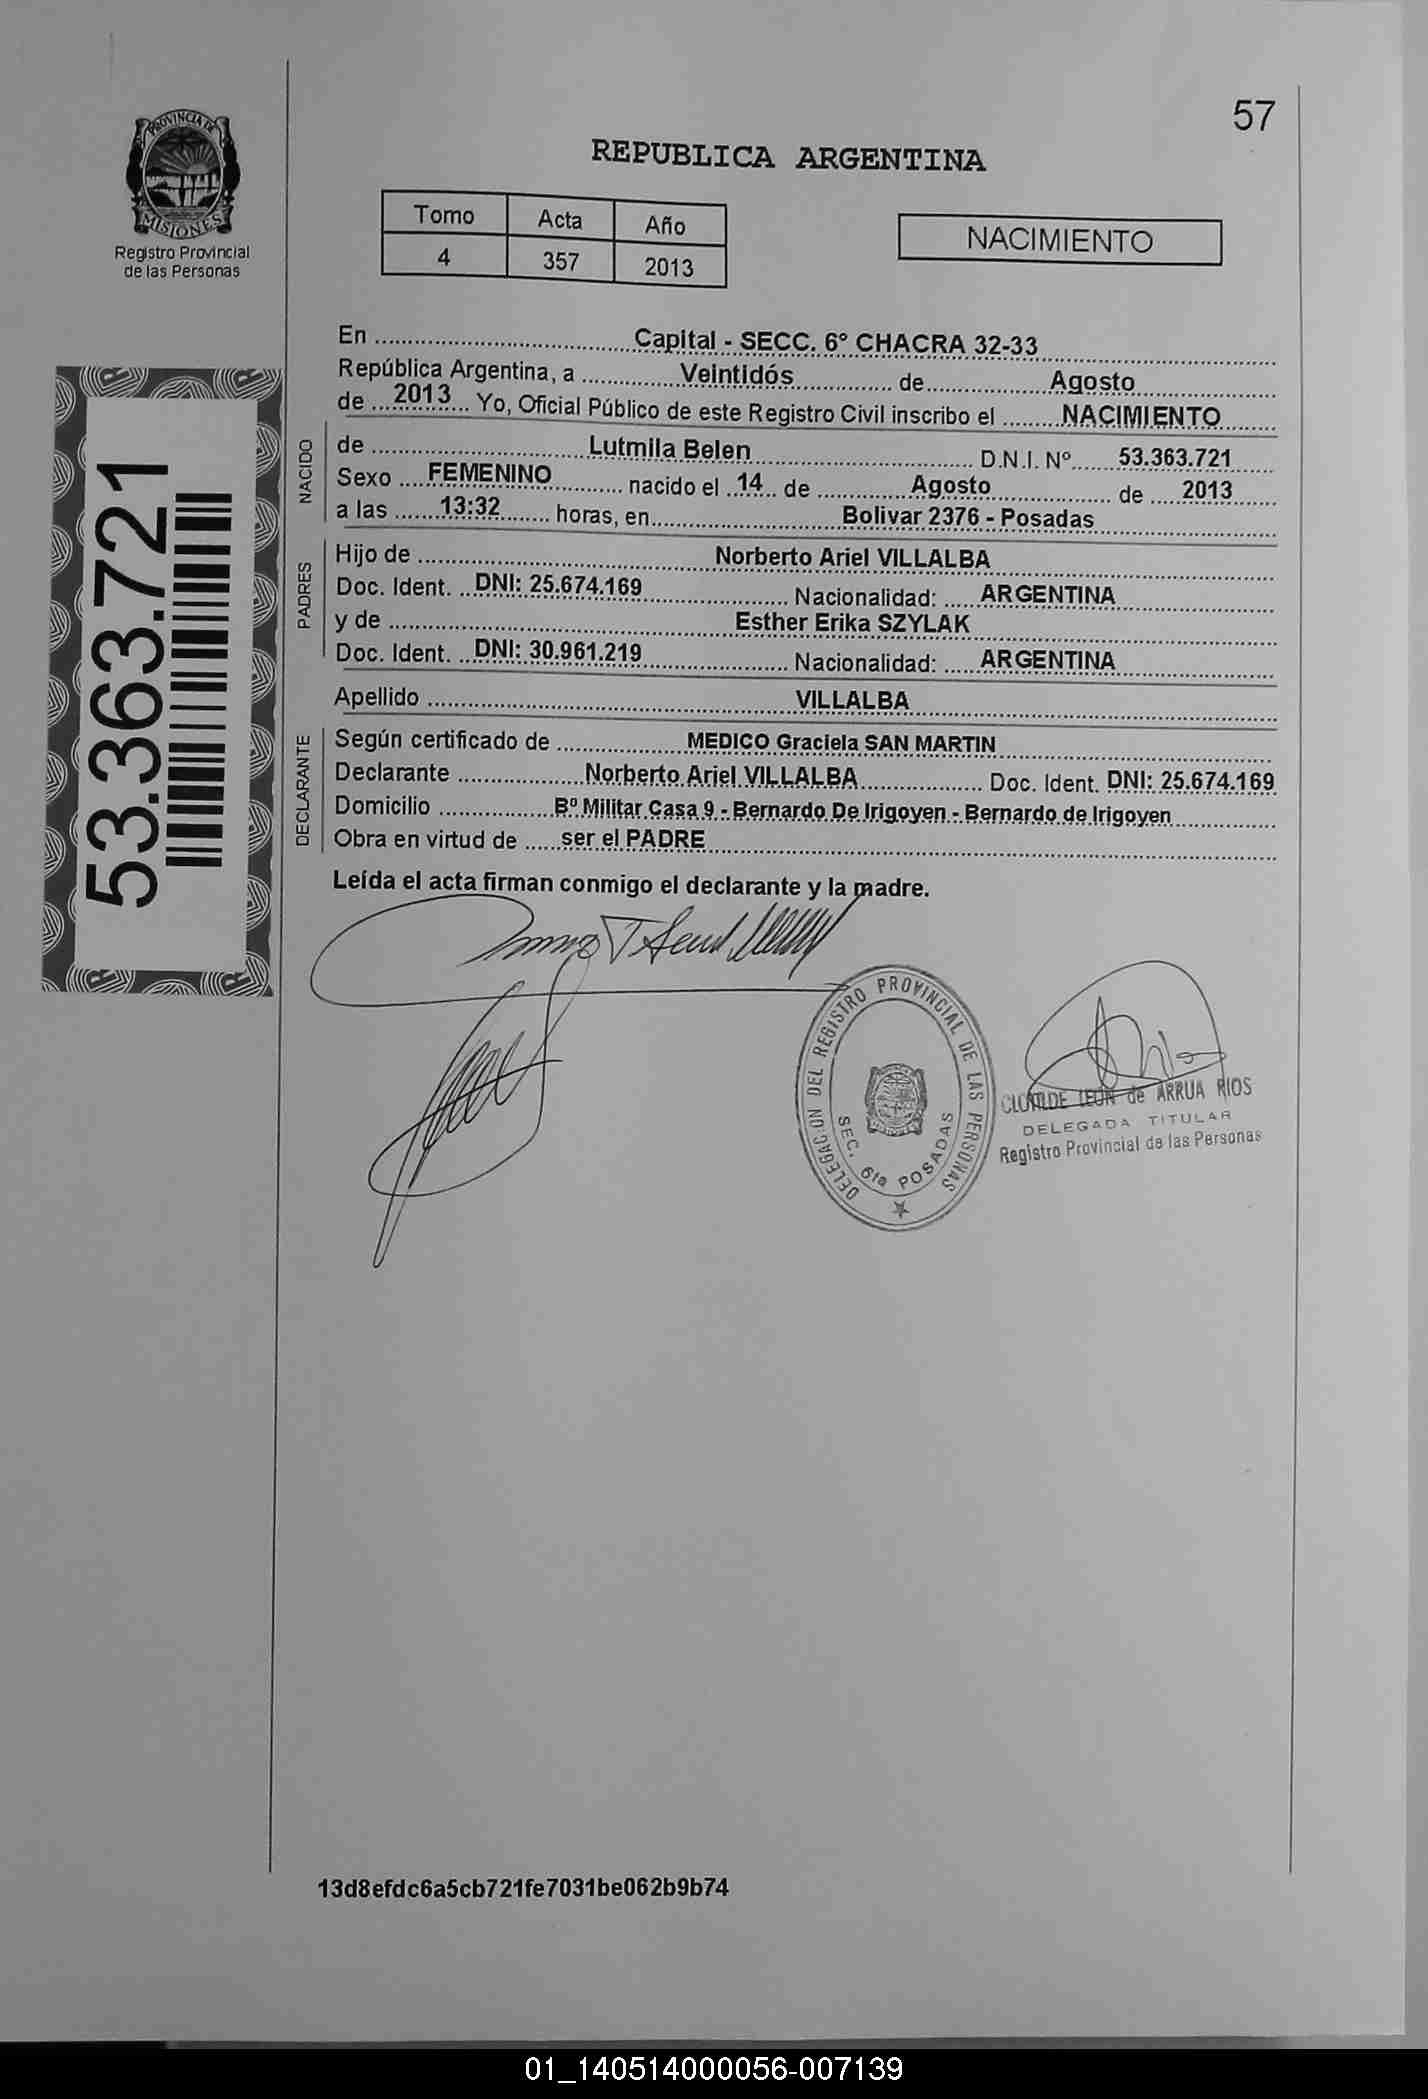 57
PROVINCIA DE
MISIONES
Registro Provincial
de las Personas
REPUBLICA ARGENTINA
Tomo Acta Año
4 357 2013
NACIMIENTO
53.363.721
En Capital - SECC. 6° CHACRA 32-33
República Argentina, a Veintidós de Agosto
de 2013 Yo, Oficial Público de este Registro Civil inscribo el NACIMIENTO
NACIDO
de Lutmila Belen D.N.I. Nº 53.363.721
Sexo FEMENINO nacido el 14 de Agosto de 2013
a las 13:32 horas, en Bolivar 2376 - Posadas
PADRES
Hijo de Norberto Ariel VILLALBA
Doc. Ident. DNI: 25.674.169 Nacionalidad: ARGENTINA
y de Esther Erika SZYLAK
Doc. Ident. DNI: 30.961.219 Nacionalidad: ARGENTINA
Apellido VILLALBA
DECLARANTE
Según certificado de MEDICO Graciela SAN MARTIN
Declarante Norberto Ariel VILLALBA Doc. Ident. DNI: 25.674.169
Domicilio Bº Militar Casa 9 - Bernardo De Irigoyen - Bernardo de Irigoyen
Obra en virtud de ser el PADRE
Leída el acta firman conmigo el declarante y la madre.
DELEGACION DEL REGISTRO PROVINCIAL DE LAS PERSONAS
SEC. 6ta POSADAS
CLOTILDE LEON de ARRUA RIOS
DELEGADA TITULAR
Registro Provincial de las Personas
13d8efdc6a5cb721fe7031be062b9b74
01_140514000056-007139